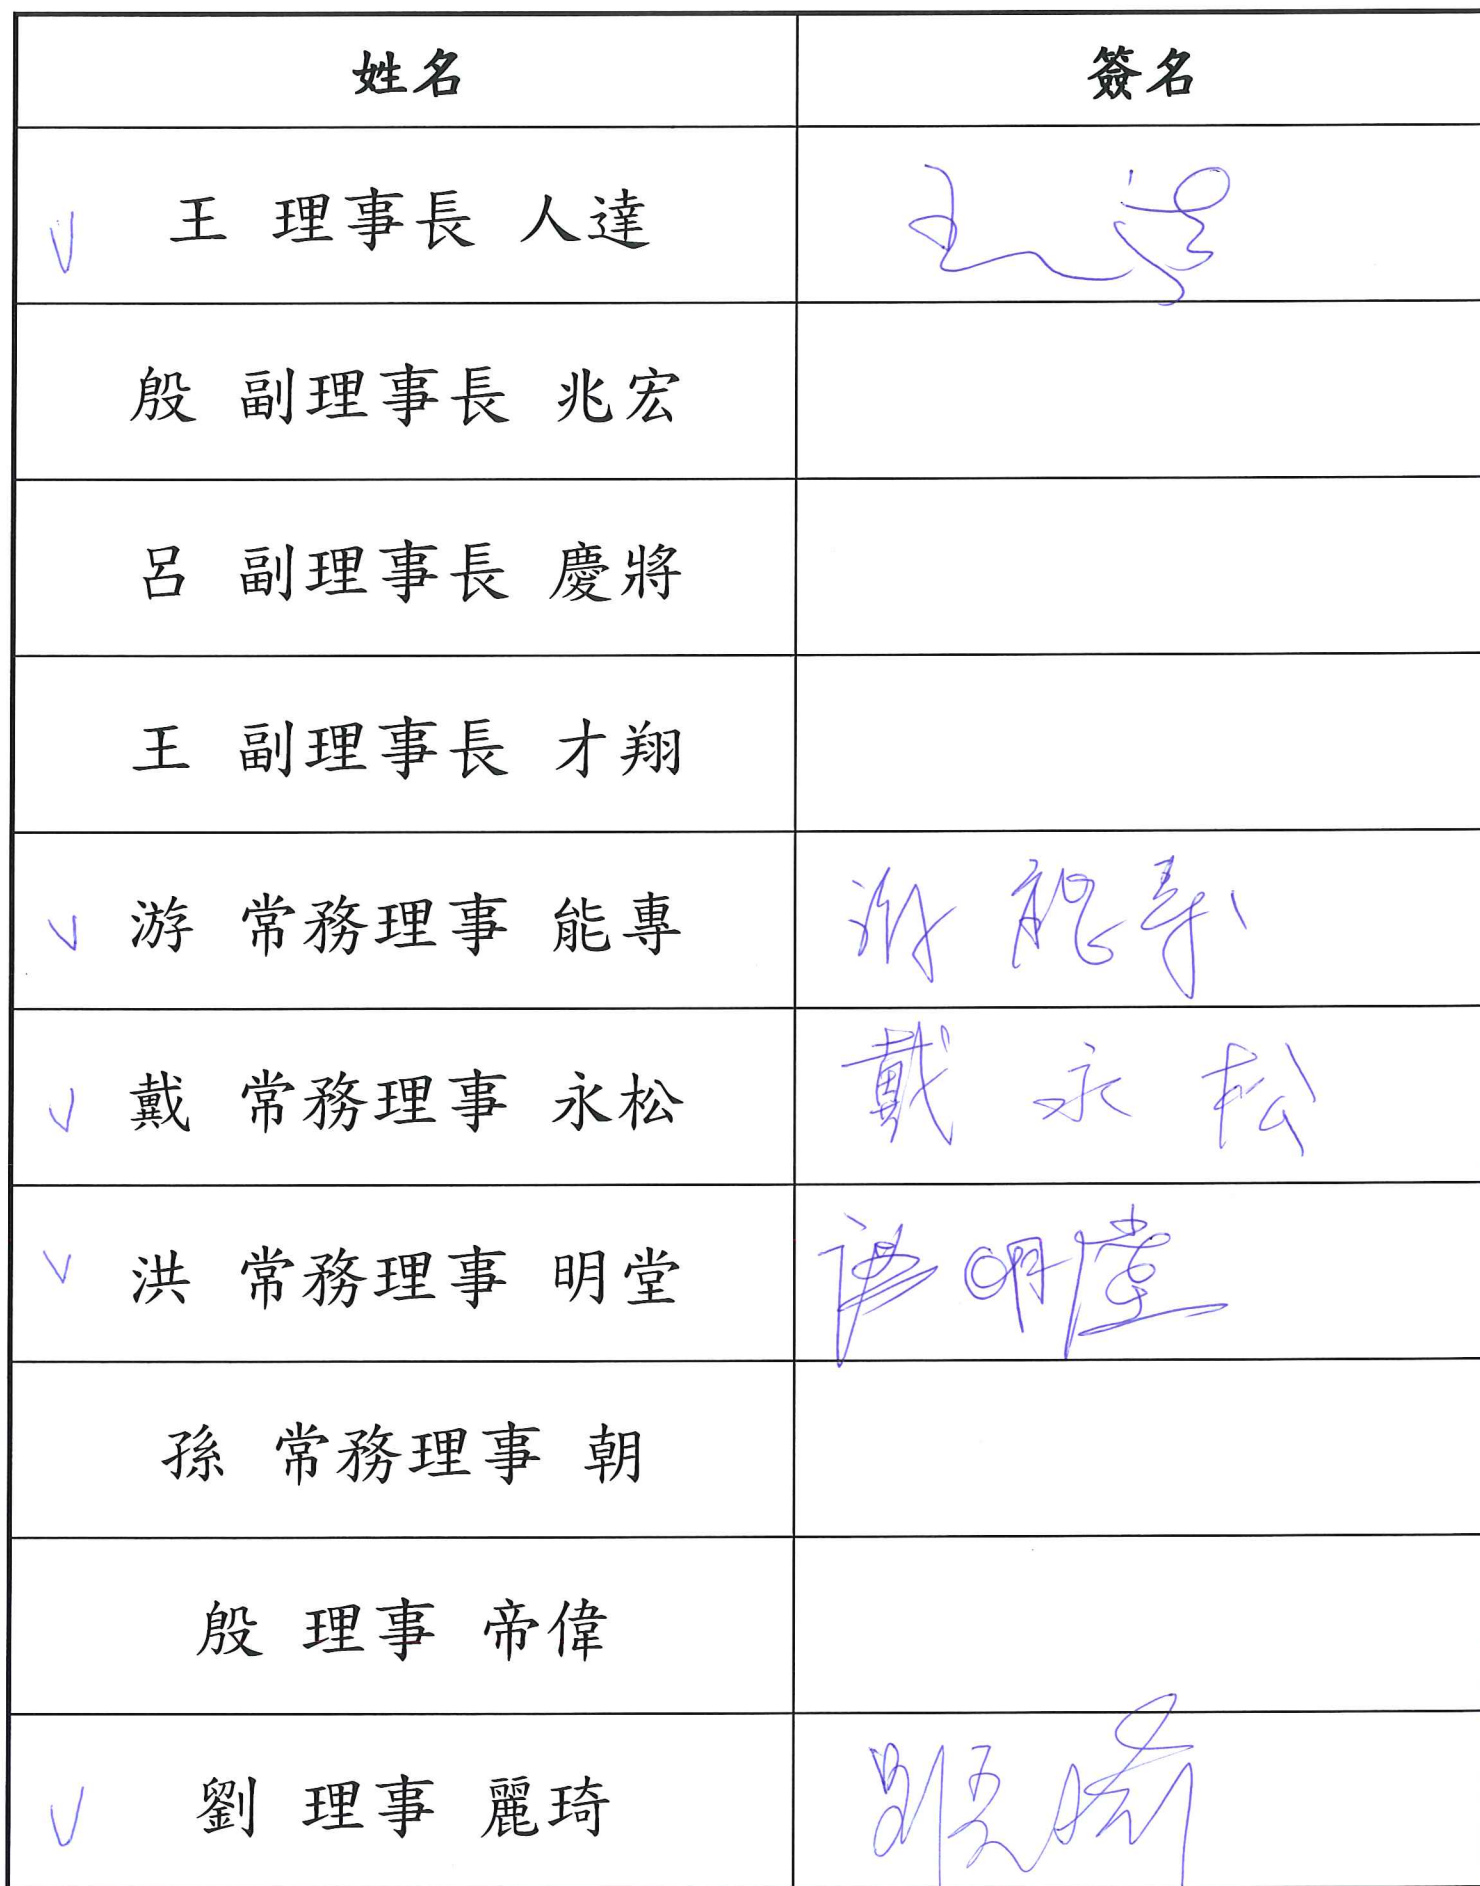 姓名 簽名
王 理事長 人達
殷 副理事長 兆宏
呂 副理事長 慶將
王 副理事長 才翔
游 常務理事 能專 游能專
戴 常務理事 永松 戴永松
洪 常務理事 明堂 洪明堂
孫 常務理事 朝
殷 理事 帝偉
劉 理事 麗琦